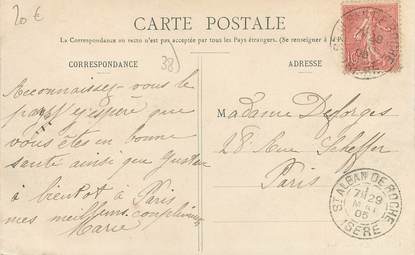 20 €
CARTE POSTALE
La Correspondance au recto n'est pas acceptée par tous les Pays étrangers. (Se renseigner à
CORRESPONDANCE
38
ADRESSE
Reconnaissez-vous le
pays j'espère que
vous êtes en bonne
santé ainsi que Gustave
à bientôt à Paris
mes meilleurs compliments
Marie
Madame Desforges
28 Rue Scheffer
Paris
ST ALBAN DE ROCHE
29
MAI
05
ISERE